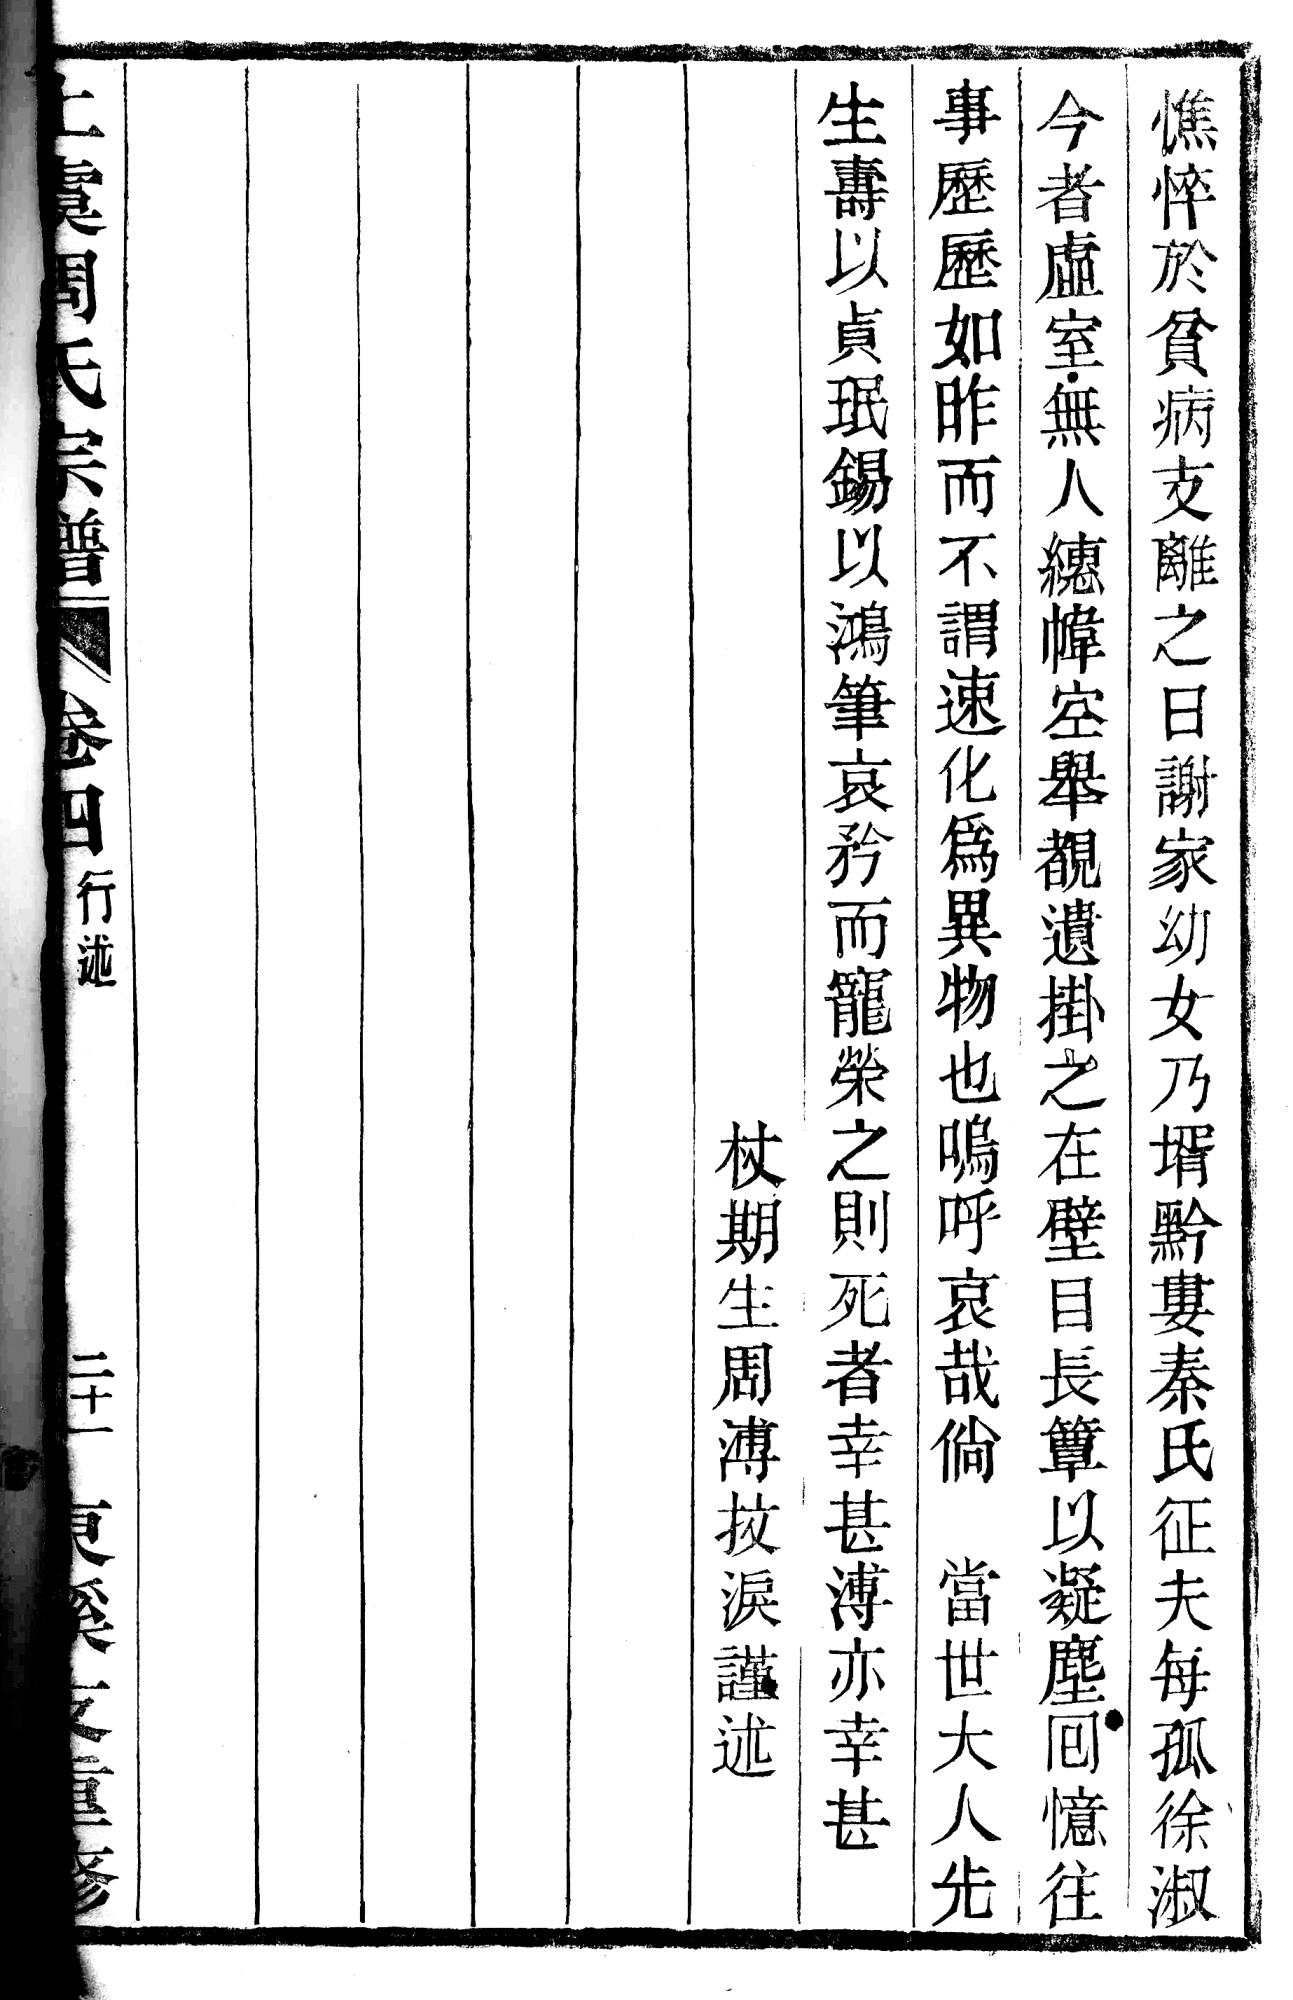 憔悴於貧病支離之日謝家幼女乃壻黔婁秦氏征夫每孤徐淑
今者虛室無人繐幃空舉覩遺掛之在壁目長簟以凝塵囘憶往
事歷歷如昨而不謂速化爲異物也嗚呼哀哉倘　當世大人先
生壽以貞珉錫以鴻筆哀矜而寵榮之則死者幸甚溥亦幸甚
杖期生周溥抆淚謹述
上虞周氏宗譜　卷四　行述　二十一　東溪支重修